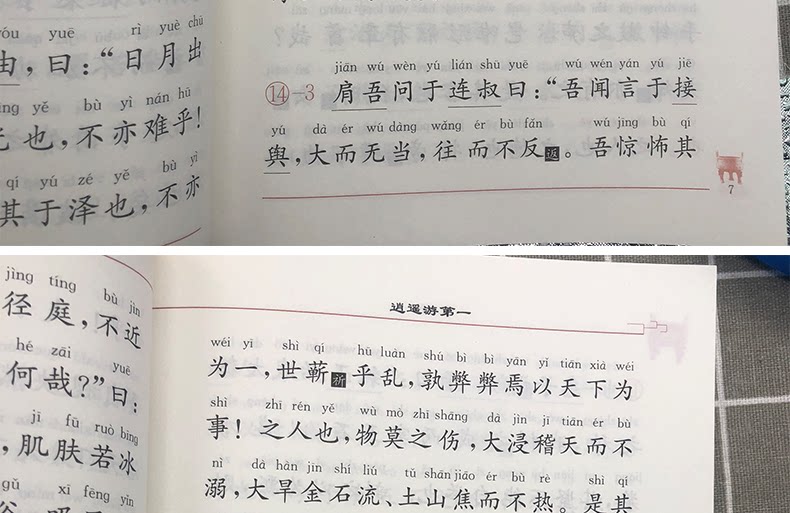 yóu yuē rì yuè chū
由，曰：“日月出
yě bù yì nán hū
也，不亦难乎！
qí yú zé yě bù yì
其于泽也，不亦
jiān wú wèn yú lián shū yuē wú wén yán yú jiē
⑭-3 肩吾问于连叔曰：“吾闻言于接
yú dà ér wú dàng wǎng ér bù fǎn wú jīng bù qí
舆，大而无当，往而不反返。吾惊怖其
7
jìng tíng bù jìn
径庭，不近
hé zāi yuē
何哉？”曰：
jī fū ruò bīng
，肌肤若冰
xī fēng yǐn
逍遥游第一
wéi yī shì qí hū luàn shú bì bì yān yǐ tiān xià wéi
为一，世蕲祈乎乱，孰弊弊焉以天下为
shì zhī rén yě wù mò zhī shāng dà jìn jī tiān ér bù
事！之人也，物莫之伤，大浸稽天而不
nì dà hàn jīn shí liú tǔ shān jiāo ér bù rè shì qí
溺，大旱金石流、土山焦而不热。是其